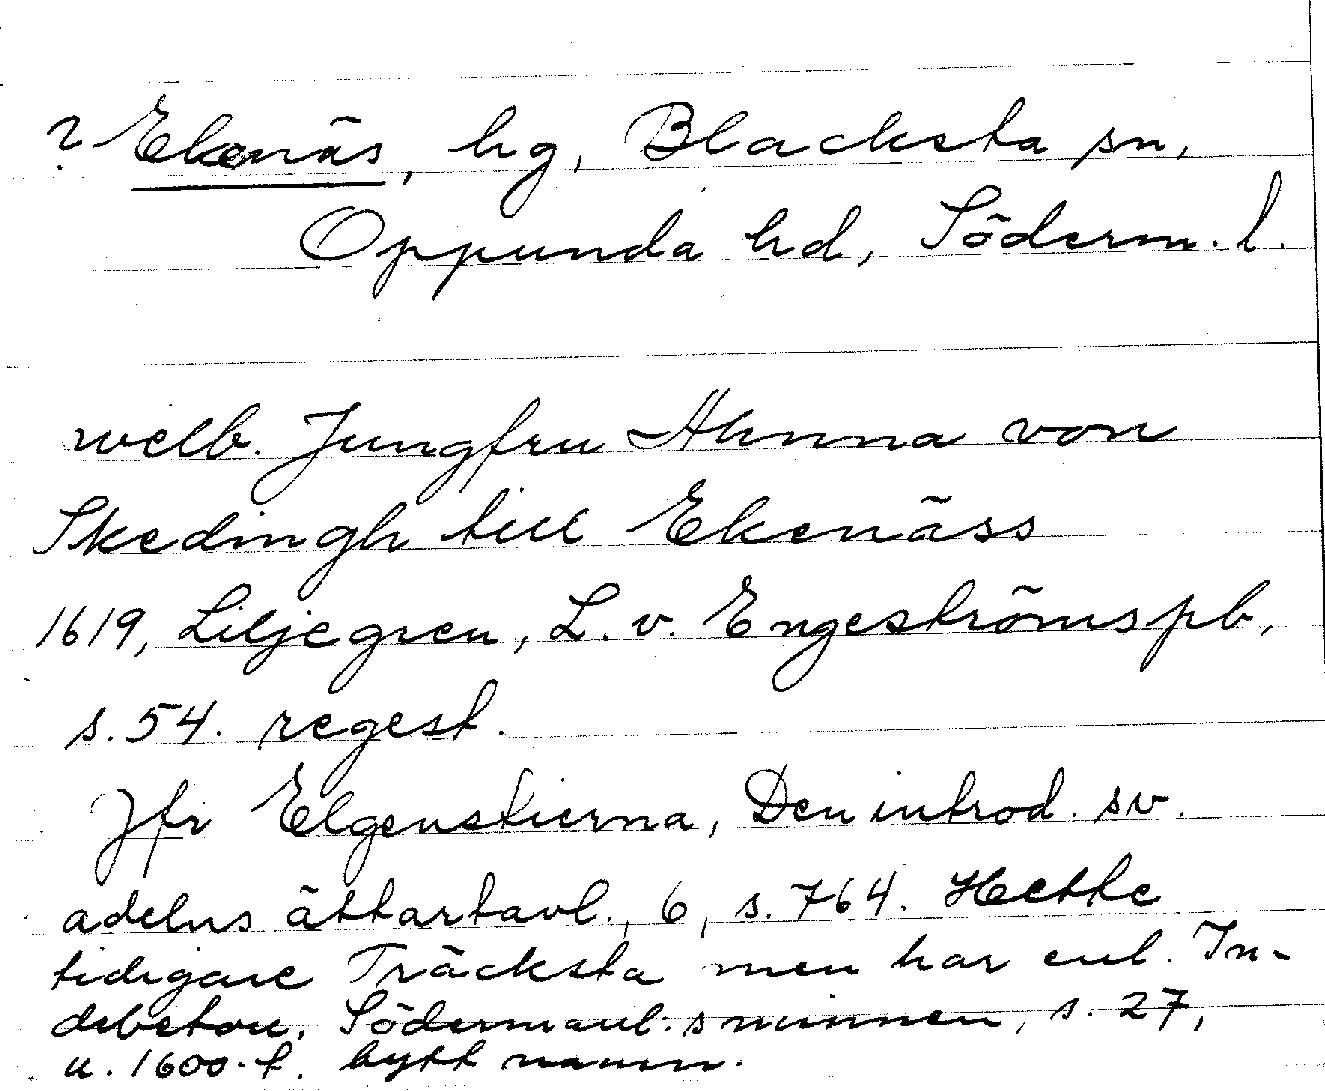 ? Ekenäs, hg, Blacksta sn,
Oppunda hd, Söderm. l.
welb. Jungfru Ahnna von
Skedingh till Ekenäss
1619, Liljegren, L. v. Engeströms pb,
s. 54. regest.
Jfr Elgenstierna, Den introd. sv.
adelns ättartavl., 6, s. 764. Hette
tidigare Träcksta men har enl. In-
debetou, Södermanl:s minnen, s. 27,
u. 1600-t. bytt namn.